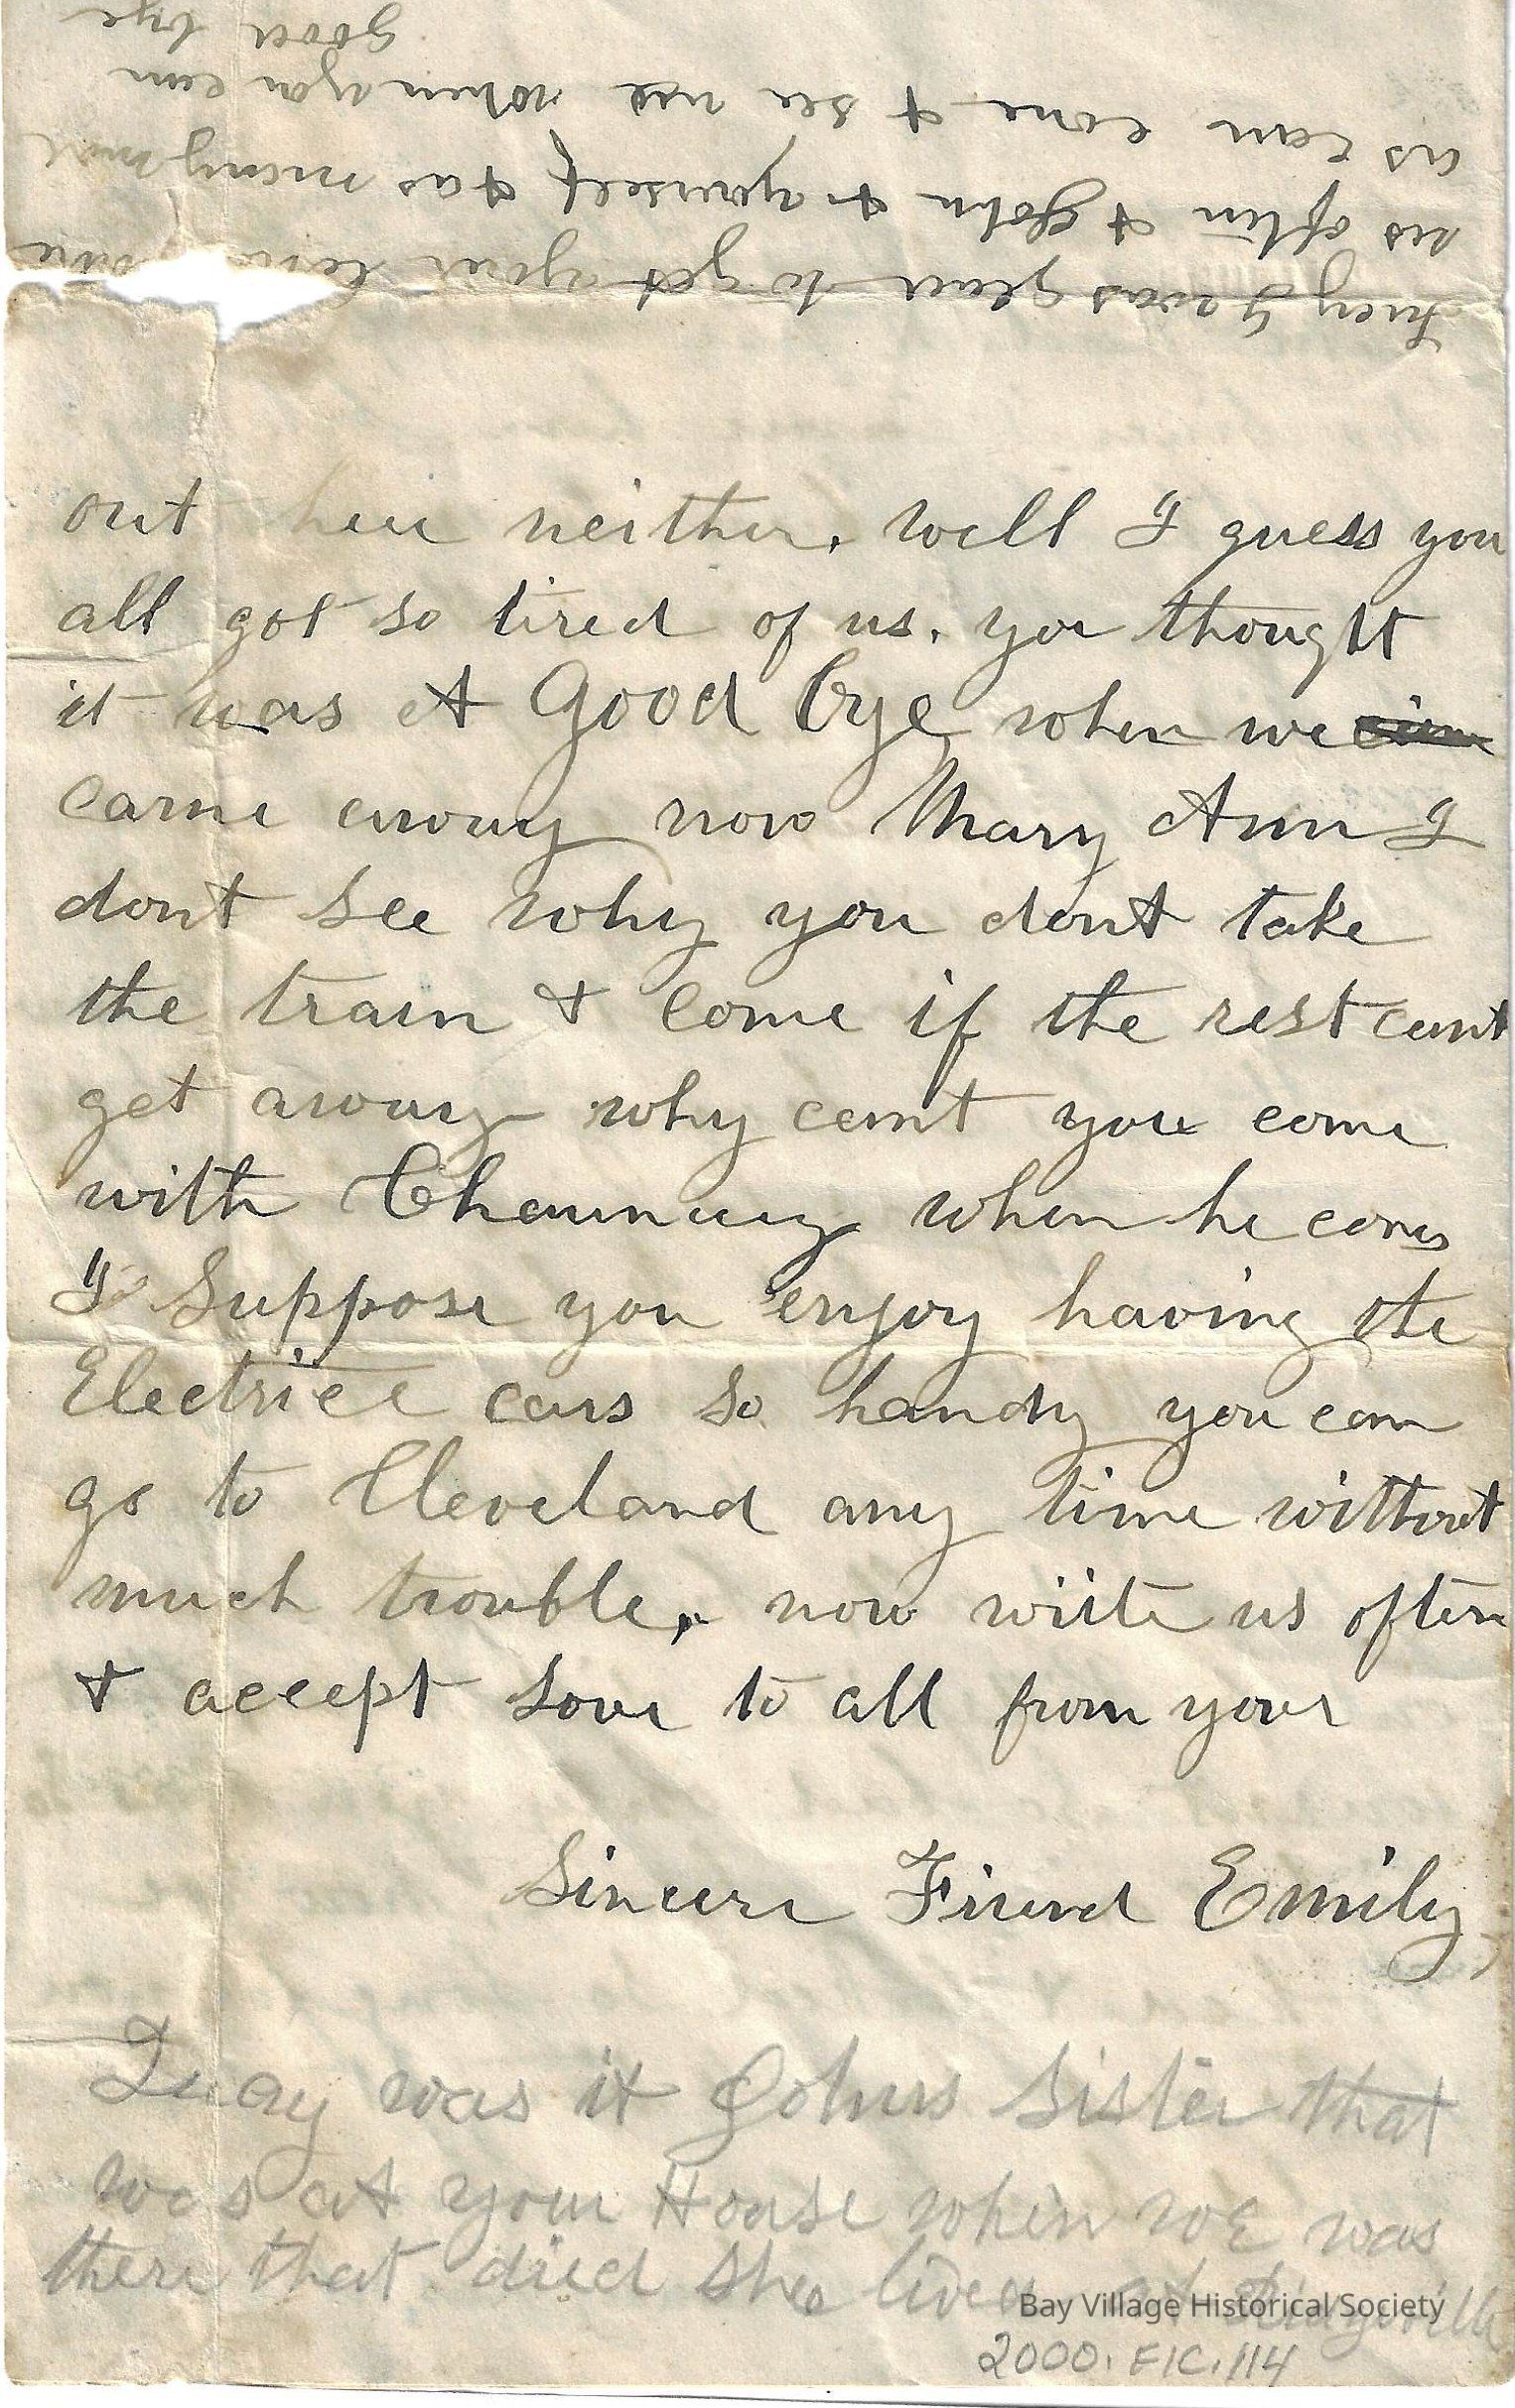 out here neither. well I guess you
all got so tired of us. you thought
it was A Good bye when we
came away now Mary Ann I
dont see why you dont take
the train & come if the rest cant
get away why cant you come
with Chauncey when he comes
I Suppose you enjoy having the
Electrice cars so handy you can
go to Cleveland any time without
much trouble. now write us often
& accept Love to all from your
Sincere Friend Emily
was it Johns Sister that
was at your House when we was
there that died She lived at Ridgeville
Lucy I was glad to get your
as often & John & yourself & as many more
as can come & see us when you can
good bye
Bay Village Historical Society
2000.FIC.114